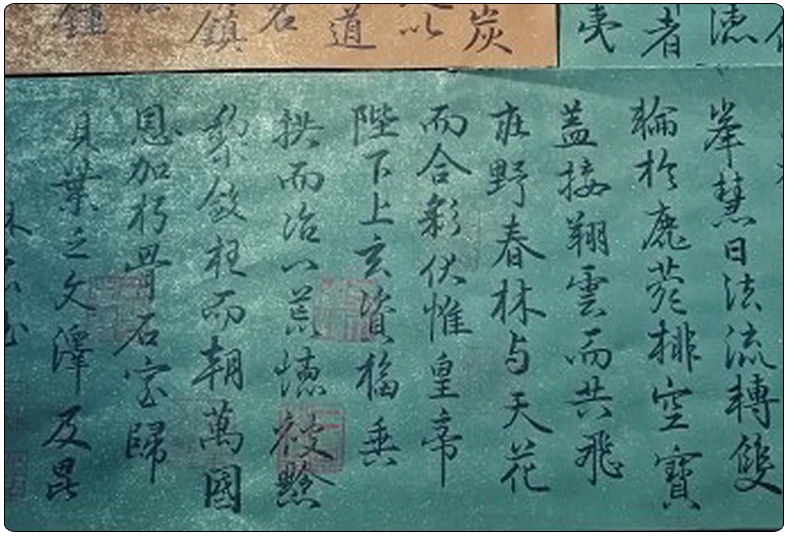 德
者
炭
以
道
名
鎮
鍾
峯慧日法流轉雙
輪於鹿菀排空寶
盖接翔雲而共飛
庄野春林与天花
而合彩伏惟皇帝
陛下上玄資福垂
拱而治八荒德被黔
黎斂衽而朝萬國
恩加朽骨石室歸
貝葉之文澤及昆